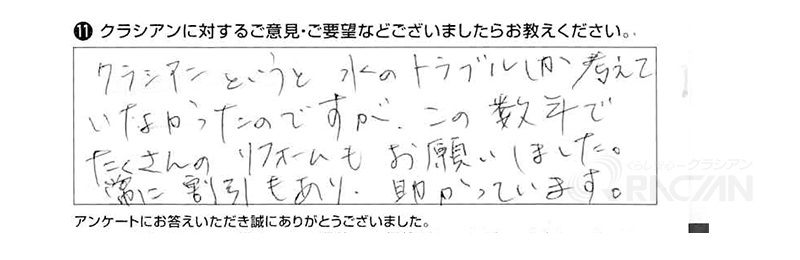 ⑪ クラシアンに対するご意見・ご要望などございましたらお教えください。
クラシアンというと 水のトラブルしか考えて
いなかったのですが、この数年で
たくさんの リフォームも お願いしました。
常に 割引もあり、助かっています。
くらし安心クラシアン
QRACIAN
アンケートにお答えいただき誠にありがとうございました。